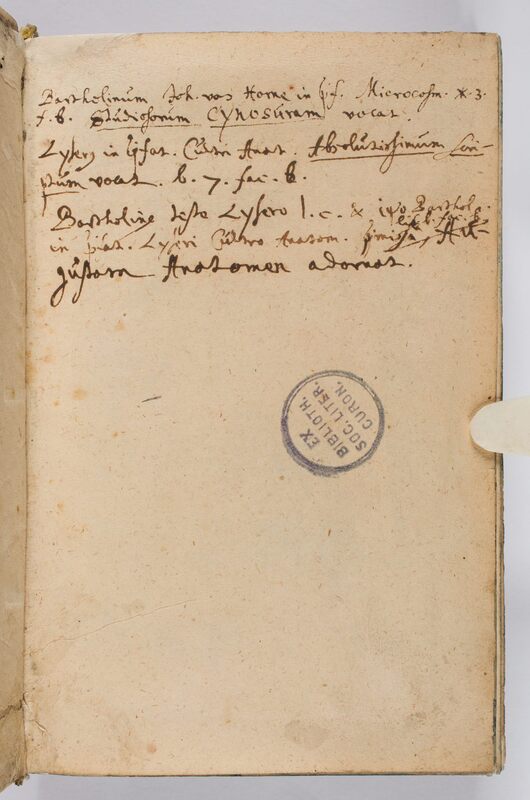 Bartholinum Joh. van Horne in ipf. Microcosm. *. 3.
f. b. Studiosorum Cynosuram vocat.
Lyserg in Cultri Anat. Absolutissimum Scri-
ptum vocat. b. 7. fac. b.
Bartholing teste Lysero l. c. & ipso Barthol.
in Lyseri Cultro Anatom. Au-
gustam Anatomen adornat.
EX
BIBLIOTH.
SOC. LITER.
CURON.